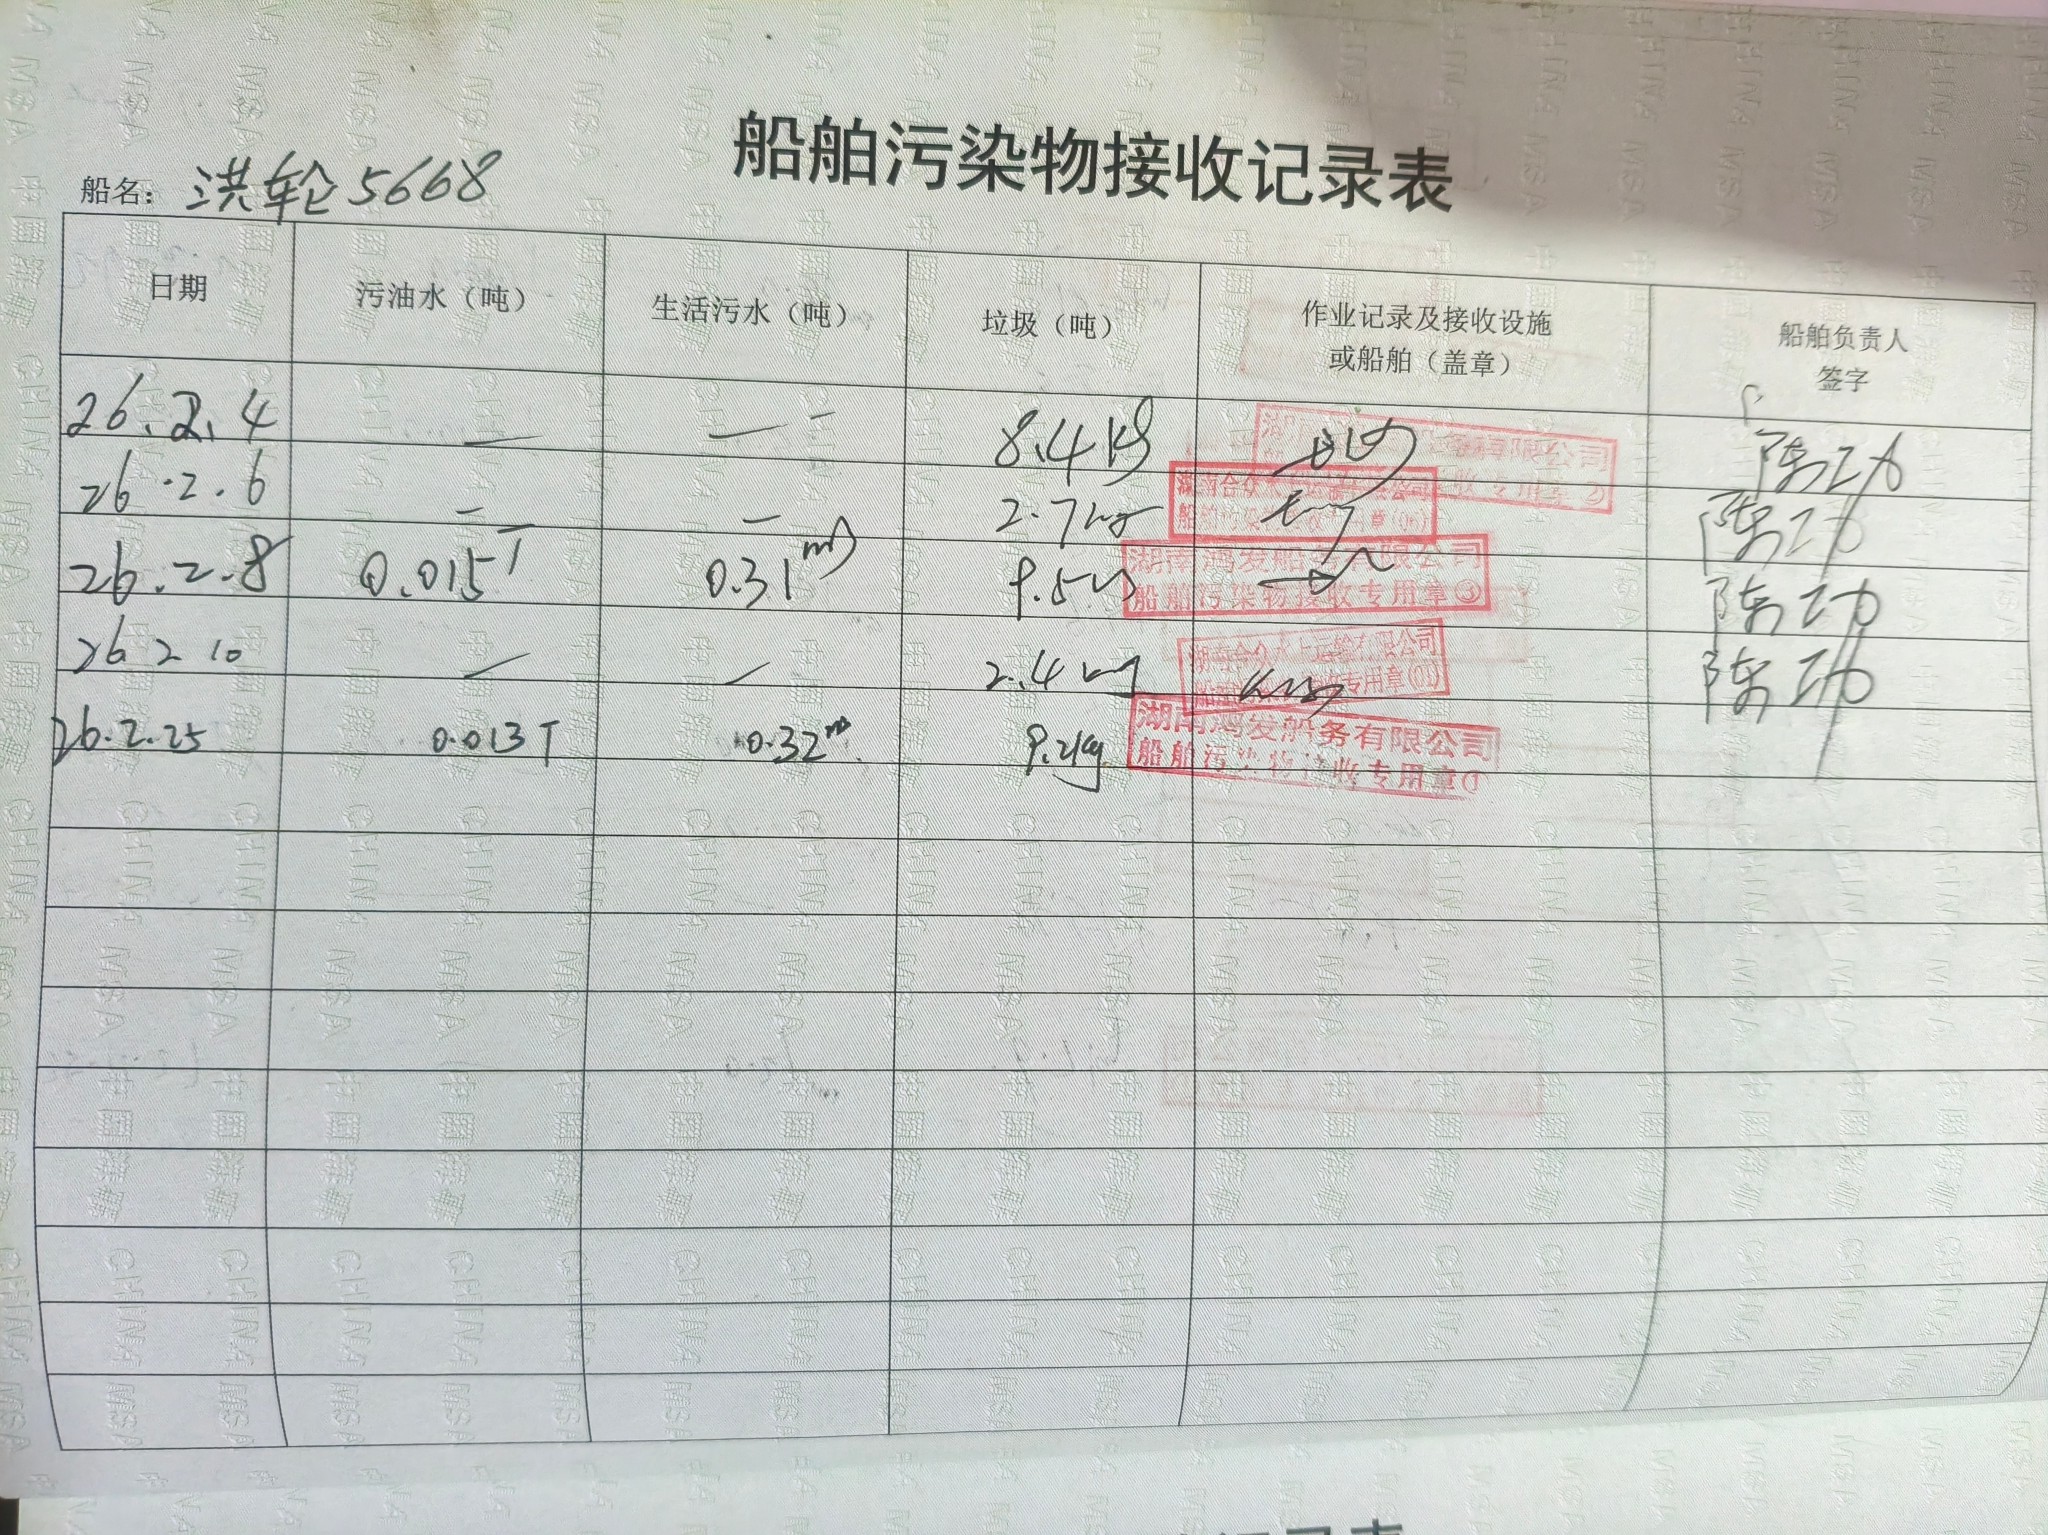 船舶污染物接收记录表
船名：洪轮5668
日期 污油水（吨） 生活污水（吨） 垃圾（吨） 作业记录及接收设施或船舶（盖章） 船舶负责人签字
26.2.4 — — 8.4kg 有限公司 ② 陈功
26.2.6 — — 2.7kg 湖南合众水上运输有限公司 船舶污染物接收专用章(06) 陈功
26.2.8 0.015T 0.31m³ 9.5kg 湖南鸿发船务有限公司 船舶污染物接收专用章③ 陈功
26 2 10 — — 2.4kg 湖南合众水上运输有限公司 船舶污染物接收专用章(01) 陈功
26.2.25 0.013T 0.32m³ 9.2kg 湖南鸿发船务有限公司 船舶污染物接收专用章①